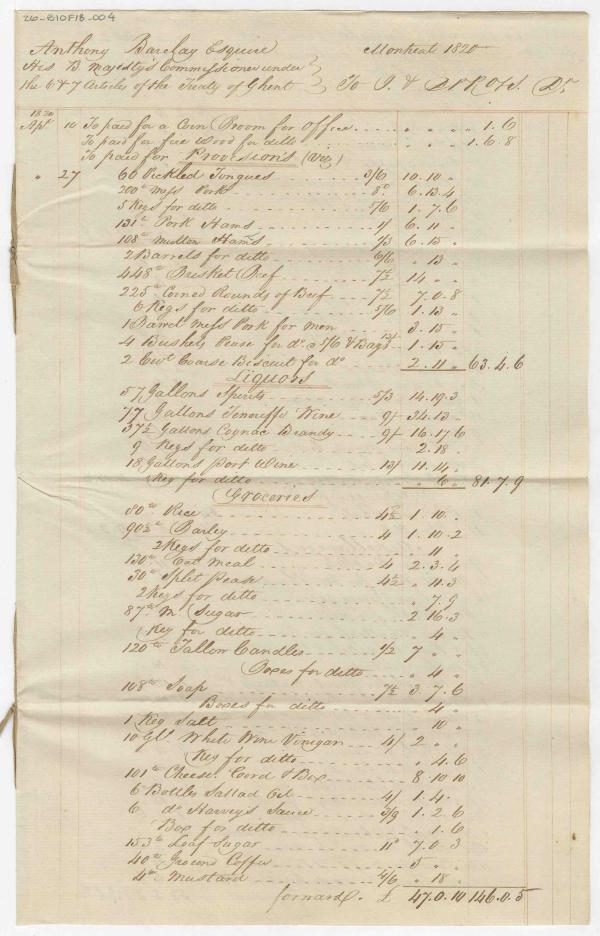 26-B10F18-004
Anthony Barclay Esquire Montreal 1820
His B. Majesty's Commissioner under
the 6 & 7 Articles of the Treaty of Ghent To J. & Dr
1820
Apl 10 To paid for a Corn Broom for Office " " " " 1.6
To paid for fire Wood for ditto " " 1.6.8
To paid for Provisions (Viz)
" 27 60 Pickled Tongues 3/6 10.10 "
200lb Mess Pork 8d. 6.13.4
5 Kegs for ditto 5/6 1.7.6
131lb Pork Hams 1/ 6.11 "
108lb Mutton Hams 1/3 6.15 "
2 Barrels for ditto 6/6 " 13 "
448lb Brisket Beef 7½ 14 " "
225lb Corned Rounds of Beef 7½ 7.0.8
6 Kegs for ditto 5/6 1.13 "
1 Barrel Mess Pork for men 3.15 "
4 Bushels Pease for do. @ 5/6 & Bags 1.15 "
2 Cwt Coarse Biscuit for do 2.11 " 63.4.6
Liquors
57 Gallons Spirits 5/3 14.19.3
77 Gallons Teneriffe Wine 9/ 34.13 "
37½ Gallons Cognac Brandy 9/ 16.17.6
9 Kegs for ditto 2.18 "
18 Gallons Port Wine 13/ 11.14 "
Keg for ditto " 6 " 81.7.9
Groceries
80lb Rice 4½ 1.10 "
90½lb Barley 4 1.10.2
2 Kegs for ditto " 11 "
130lb Oat Meal 4 2.3.4
30lb Split Pease 4½ " 11.3
2 Kegs for ditto " 7.9
87lb M Sugar 2.16.3
Keg for ditto " 4 "
120lb Tallow Candles 1/2 7 " "
Boxes for ditto " 4 "
108lb Soap 7½ 3.7.6
Boxes for ditto " 4 "
1 Keg Salt " 10 "
10 Gls. White Wine Vinegar 4/ 2 " "
Keg for ditto " 4.6
101lb Cheese Cord & Box 8.10.10
6 Bottles Sallad Oil 4/ 1.4 "
6 do Harvey's Sauce 3/9 1.2.6
Box for ditto " 1.6
153lb Loaf Sugar 11d 7.0.3
40lb Ground Coffee 5 " "
4lb Mustard 4/6 " 18 "
forward. £ 47.0.10 146.0.5